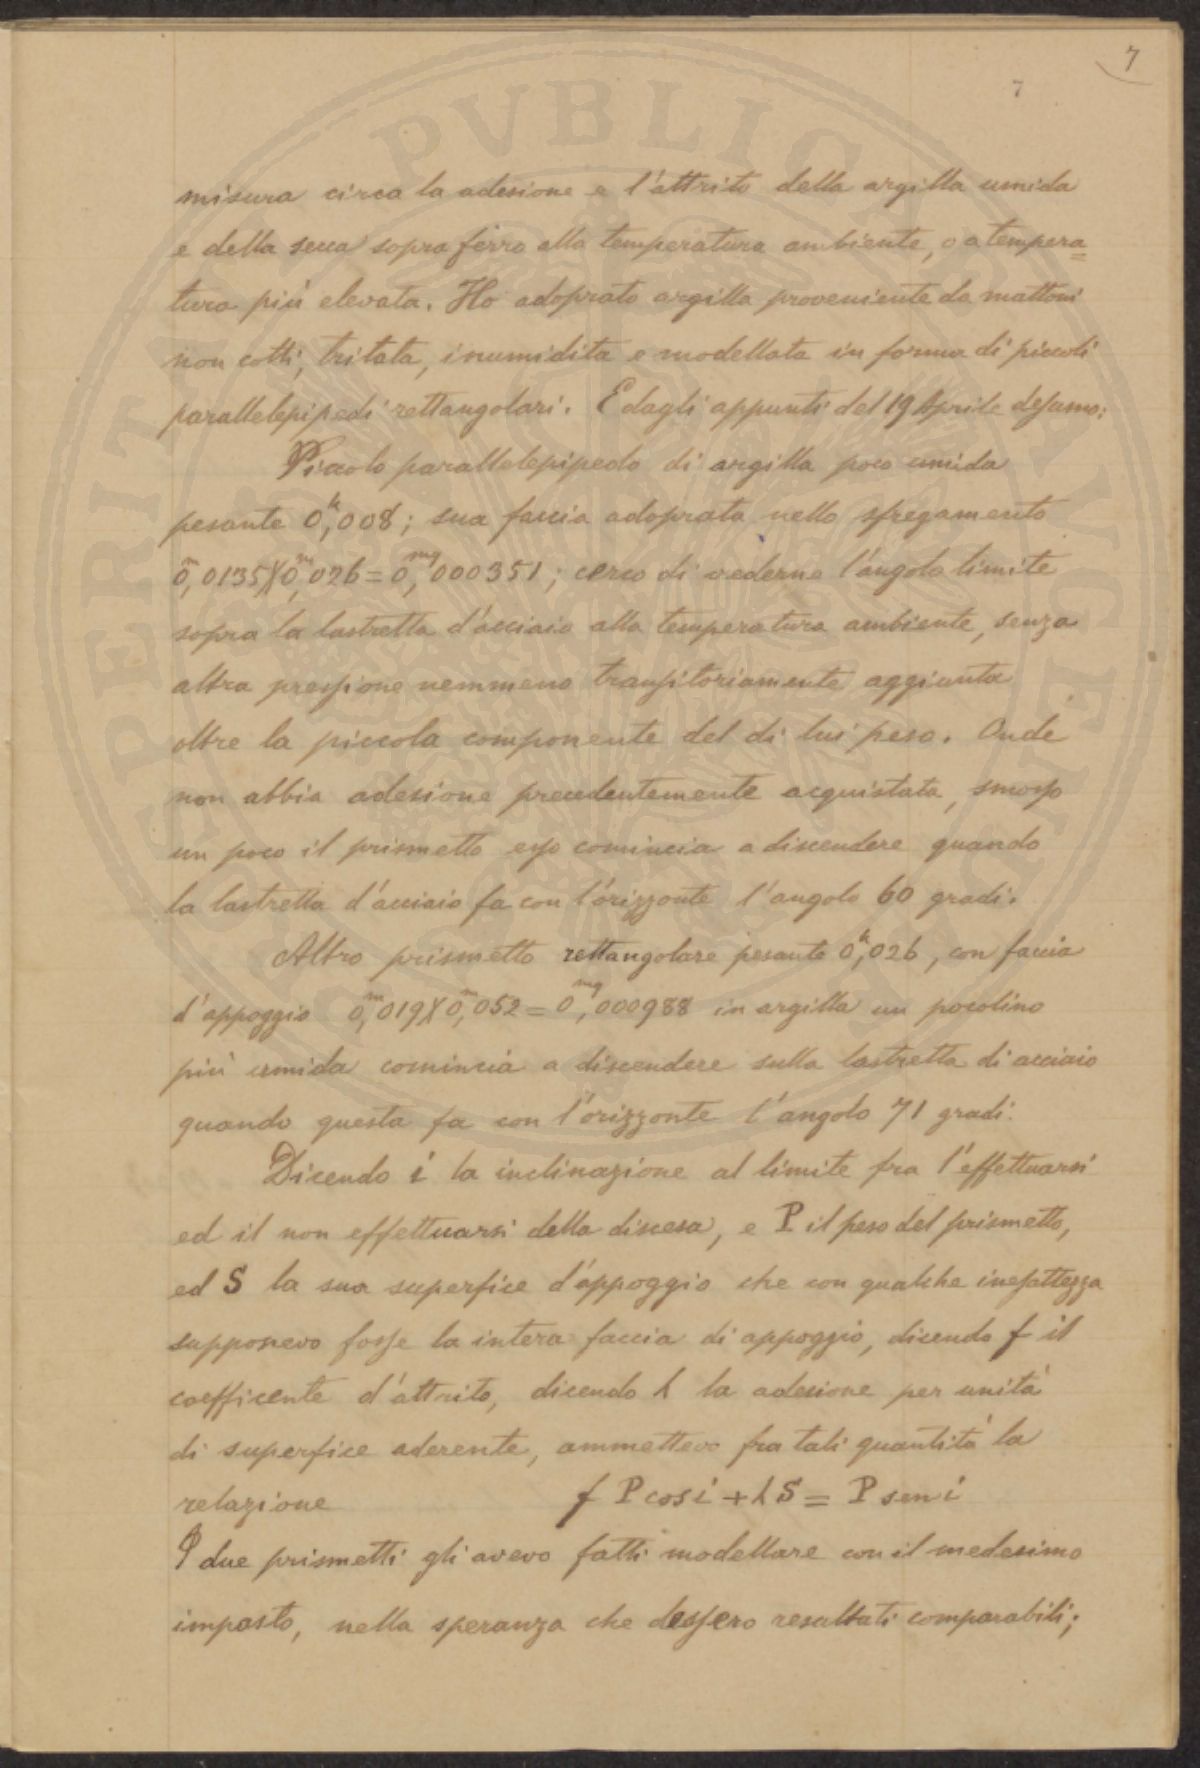 7
7
misura circa la adesione e l'attrito della argilla umida
e della secca sopra ferro alla temperatura ambiente, o a tempera=
tura più elevata. Ho adoprato argilla proveniente da mattoni
non cotti, tritata, inumidita e modellata in forma di piccoli
parallelepipedi rettangolari. E dagli appunti del 19 Aprile desumo:
Piccolo parallelepipedo di argilla poco umida
pesante 0k,008; sua faccia adoprata nello sfregamento
0m,0135X0m,026=0mq,000351; cerco di vederne l'angolo limite
sopra la lastretta d'acciaio alla temperatura ambiente, senza
altra pressione nemmeno transitoriamente aggiunta
oltre la piccola componente del di lui peso. Onde
non abbia adesione precedentemente acquistata, smosso
un poco il prismetto esso comincia a discendere quando
la lastretta d'acciaio fa con l'orizzonte l'angolo 60 gradi.
Altro prismetto rettangolare pesante 0k,026, con faccia
d'appoggio 0m,019X0m,052=0mq,000988 in argilla un pocolino
più umida comincia a discendere sulla lastretta di acciaio
quando questa fa con l'orizzonte l'angolo 71 gradi.
Dicendo i la inclinazione al limite fra l'effettuarsi
ed il non effettuarsi della discesa, e P il peso del prismetto,
ed S la sua superfice d'appoggio che con qualche inesattezza
supponevo fosse la intera faccia di appoggio, dicendo f il
coefficente d'attrito, dicendo h la adesione per unità
di superfice aderente, ammettevo fra tali quantità la
relazione f P cos i + h S = P sen i
I due prismetti gli avevo fatti modellare con il medesimo
impasto, nella speranza che dessero resultati comparabili;
PVBLICA
VERITAS